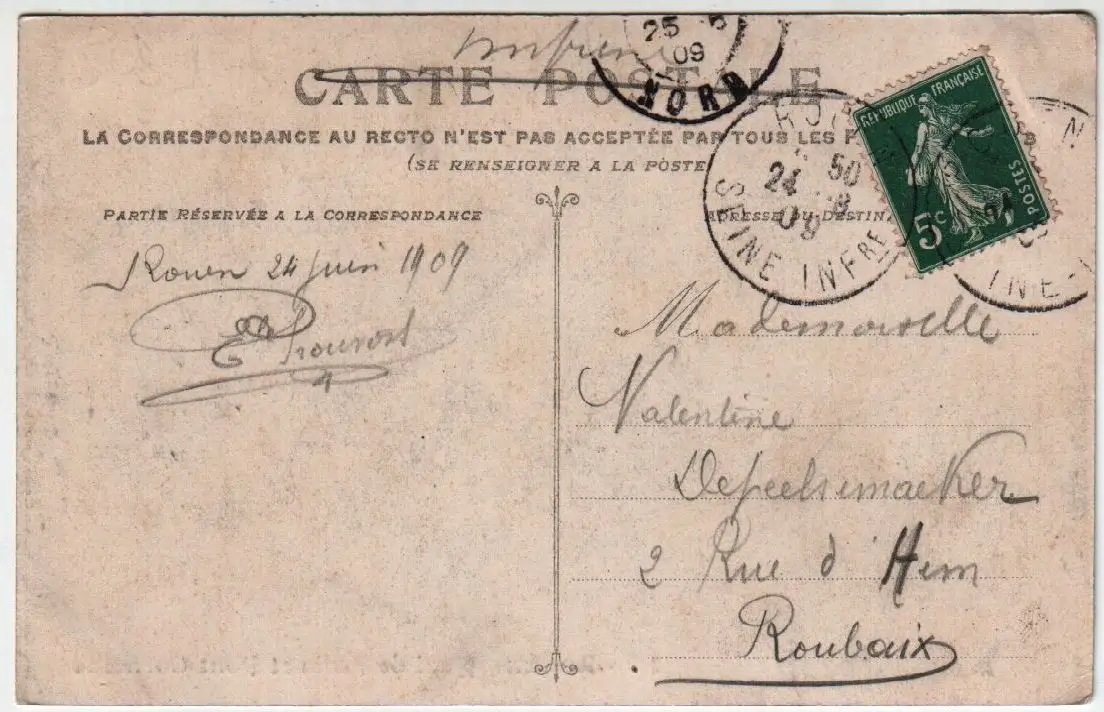 imprimé
CARTE POSTALE
LA CORRESPONDANCE AU RECTO N'EST PAS ACCEPTÉE PAR TOUS LES P S
(SE RENSEIGNER A LA POSTE
PARTIE RÉSERVÉE A LA CORRESPONDANCE
ADRESSE DU DESTINA
25 -6
09
NORD
ROU
24 50
09
SEINE INFRE
N
INE-I
REPUBLIQUE FRANÇAISE
POSTES
5c
Rouen 24 juin 1909
E Prouvost
Mademoiselle
Valentine
Depeelsemaeker
2 Rue d'Hem
Roubaix